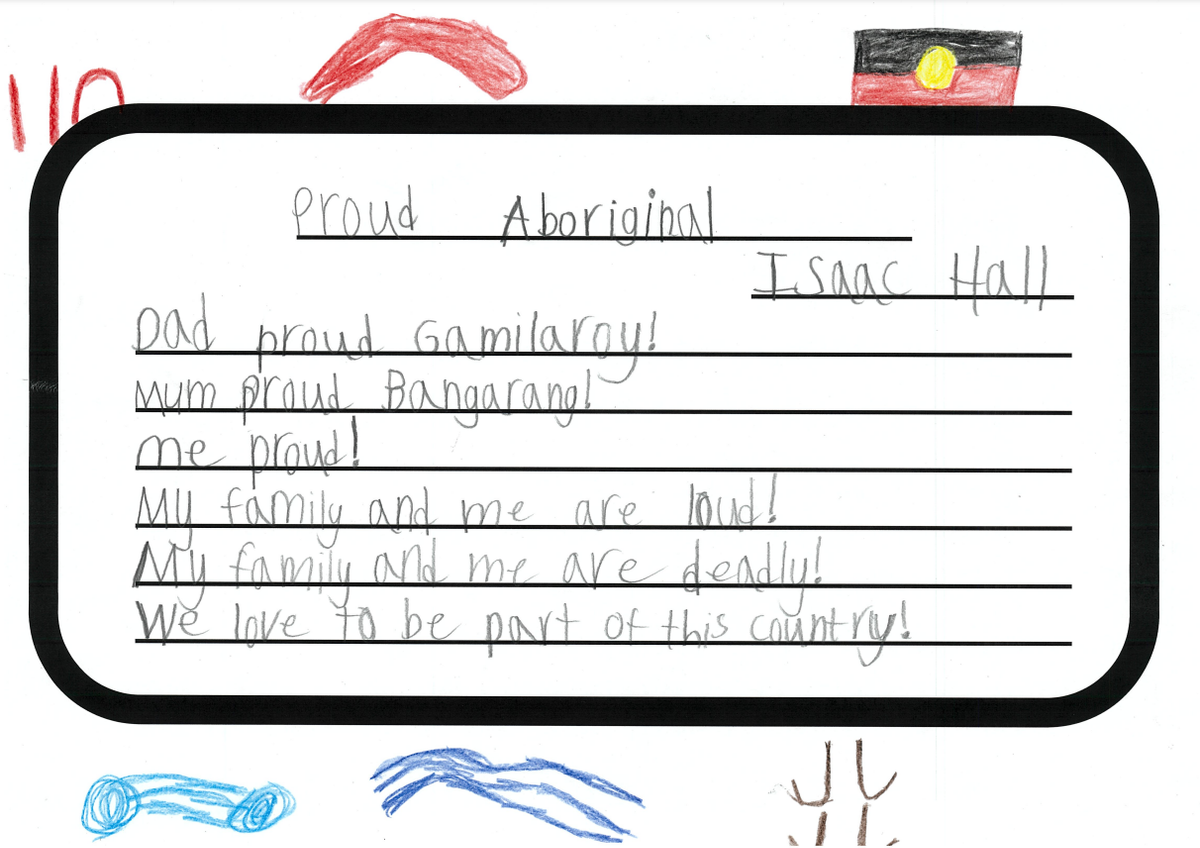 Proud Aboriginal
Isaac Hall
Dad proud Gamilaroy!
Mum proud Bangarang!
me proud!
My family and me are loud!
My family and me are deadly!
We love to be part of this country!